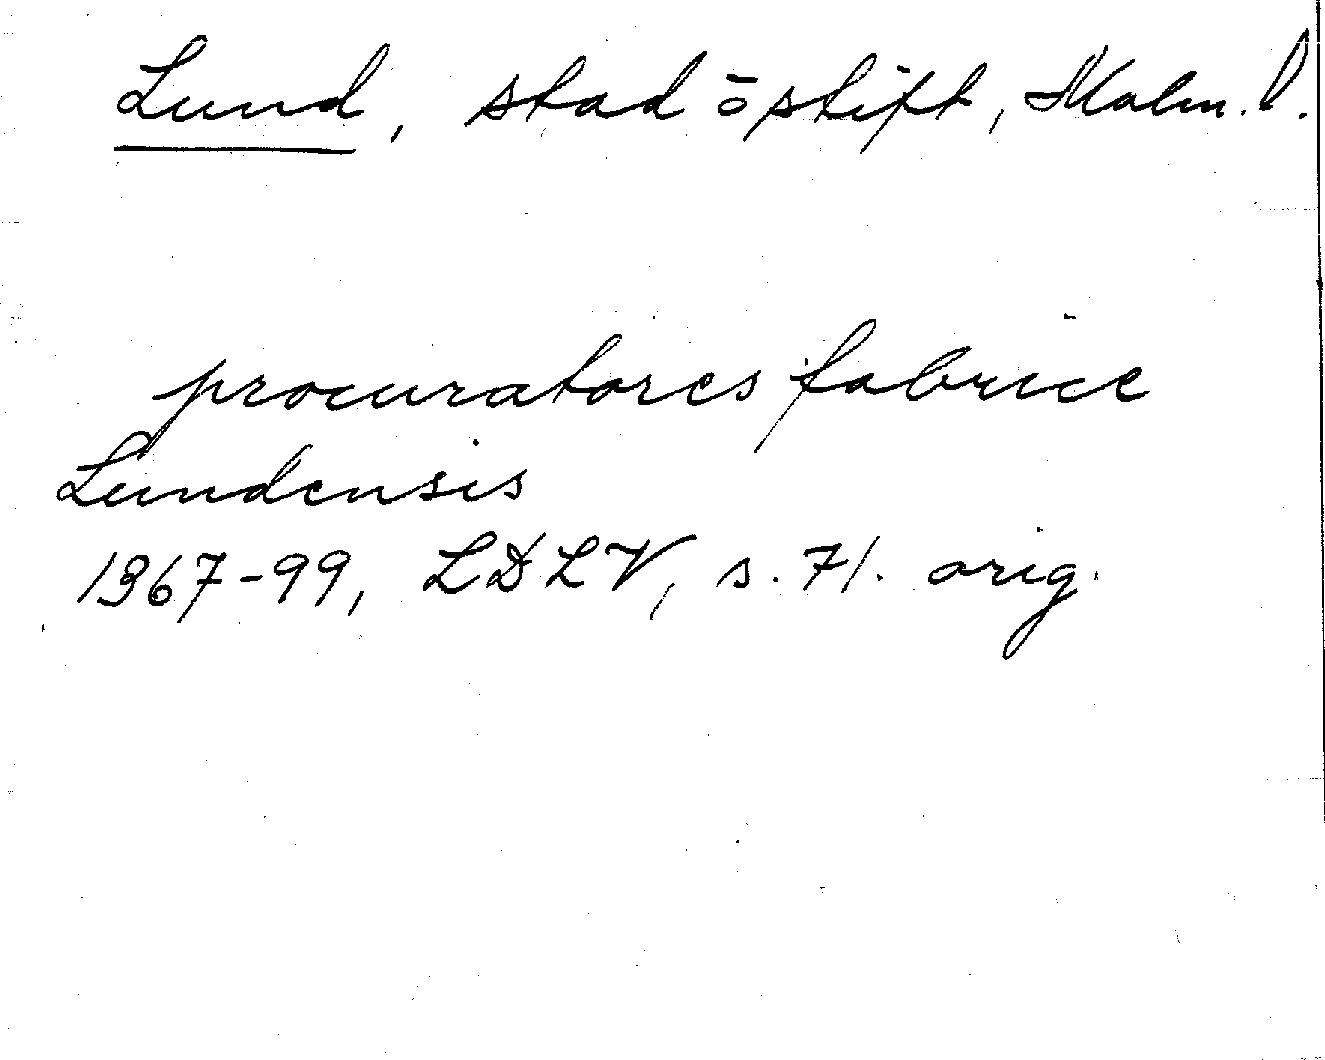 Lund, stad o stift, Malm. l.
procuratores fabrice
Lundensis
1367-99, LDLV, s. 71. orig.